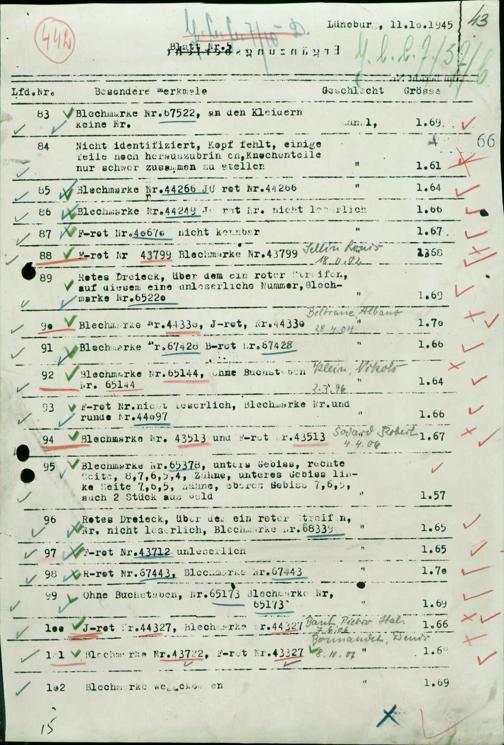 43
442
Lüneburg, 11.10.1945
Blatt Nr.5
Ergänzungsbericht
Lfd.Nr. Besondere Merkmale Geschlecht Grösse
83 Blechmarke Nr.67522, an den Kleidern
keine Nr. 1.69
66
84 Nicht identifiziert, Kopf fehlt, einige
Teile noch herauszubringen, Knochenteile
nur schwer zusammen zu stellen " 1.61
85 Blechmarke Nr.44266 JU rot Nr.44266 " 1.64
86 Blechmarke Nr.44249 JU rot Nr. nicht leserlich " 1.66
87 F-rot Nr.40670 nicht kennbar " 1.67
88 Nr 43799 Blechmarke Nr.43799 " 1.68
89 Rotes Dreieck, über dem ein roter Streifen,
auf diesem eine unleserliche Nummer, Blech-
marke Nr.65220 " 1.69
90 Blechmarke Nr.44330, J-rot, Nr.44330 " 1.70
91 Blechmarke Nr.67428 B-rot Nr.67428 " 1.66
92 Blechmarke Nr.65144, ohne Buchstaben
Nr. 65144 " 1.64
93 F-rot Nr.nicht leserlich, Blechmarke Nr.und
runde Nr.44097 " 1.66
94 Blechmarke Nr. 43513 und F-rot Nr.43513 1.67
4.4.06
95 Blechmarke Nr.65378, unters Gebiss, rechte
Seite, 8,7,6,5,4, Zähne, unteres Gebiss lin-
ke Seite 7,6,5, Zähne, oberes Gebiss 7,6,5,
auch 2 Stück aus Gold " 1.57
96 Rotes Dreieck, über dem ein roter Streifen,
Nr. nicht leserlich, Blechmarke Nr.68339 " 1.65
97 F-rot Nr.43712 unleserlich " 1.65
98 R-rot Nr.67443, Blechmarke Nr.67443 " 1.70
99 Ohne Buchstaben, Nr.65173 Blechmarke Nr,
65173 " 1.69
100 J-rot Nr.44327, Blechmarke Nr.44327 1.66
101 Blechmarke Nr.43722, F-rot Nr.43327 "
102 Blechmarke weggekommen " 1.69
15